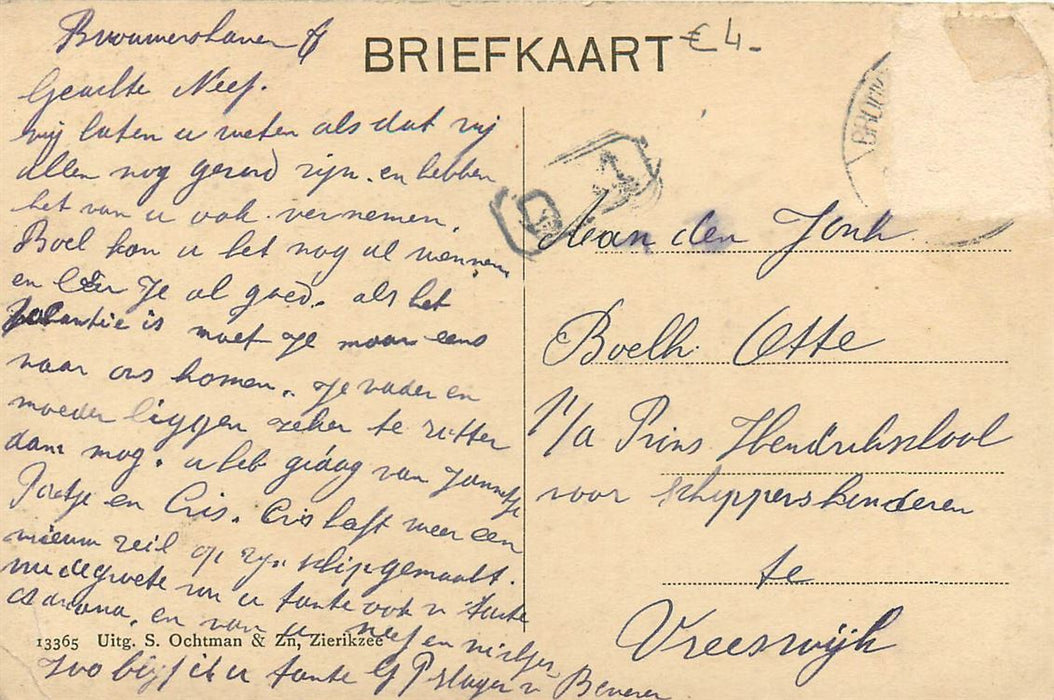 Brouwershaven
BRIEFKAART
€ 4-
Geachte Neef.
wij laten u weten als dat wij
allen nog gezond zijn. en hebben
het van u ook vernemen.
Boel kon u het nog al wennen
en leer je al goed. als het
vacantie is moet je maar eens
naar ons komen. je vader en
moeder liggen zeker te rotter
dam nog. u heb gedag van Jannetje
en Cris. Cris haft weer een
nieuw zeil op zijn schip gemaakt.
nu de groete van u tante ook v tante
en van u neef en nichje
zoo blijf ik u tante
13365 Uitg. S. Ochtman & Zn, Zierikzee
BROUW
D 1
Aan den Jonk
Boelh. Otte
p/a Prins Hendrikschool
voor schipperskinderen
te
Vreeswijk